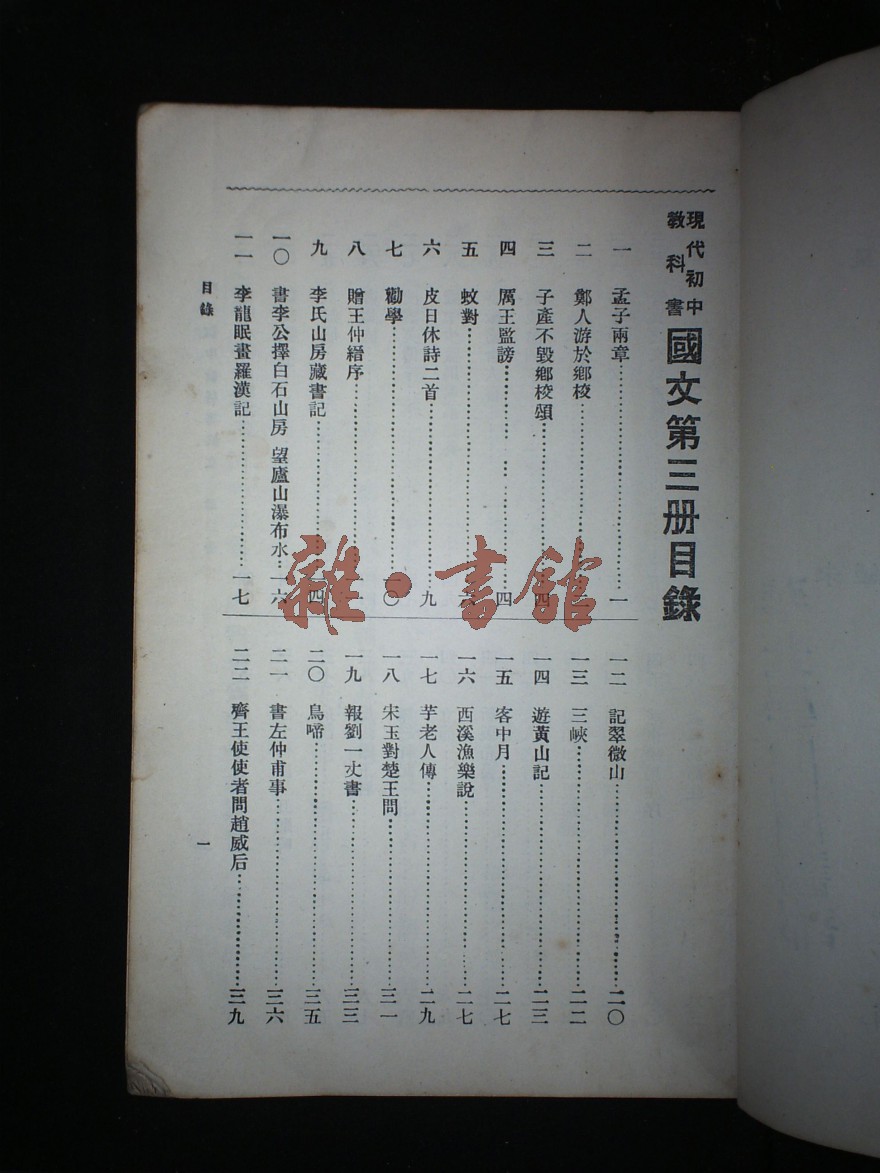 現代初中
教科書
國文第三册目錄
一 孟子兩章……一
二 鄭人游於鄉校……
三 子產不毀鄉校頌……四
四 厲王監謗……四
五 蚊對……
六 皮日休詩二首……九
七 勸學……一〇
八 贈王仲縉序……
九 李氏山房藏書記……一四
一〇 書李公擇白石山房 望廬山瀑布水…一六
一一 李龍眠畫羅漢記……一七
一二 記翠微山……二〇
一三 三峽……二二
一四 遊黃山記……二三
一五 客中月……二七
一六 西溪漁樂說……二七
一七 芋老人傳……二九
一八 宋玉對楚王問……三一
一九 報劉一丈書……三三
二〇 烏啼……三五
二一 書左仲甫事……三六
二二 齊王使使者問趙威后……三九
目錄
一
雜·書館